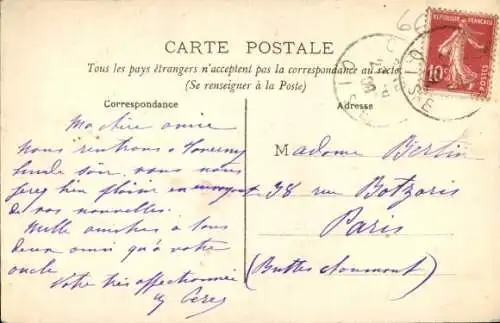 CARTE POSTALE
Tous les pays étrangers n'acceptent pas la correspondance au recto
(Se renseigner à la Poste)
Correspondance
Adresse
RÉPUBLIQUE FRANÇAISE
10c
POSTES
Ma chère amie
Nous rentrons à
lundi soir. vous nous
ferez bien plaisir en envoyant
de vos nouvelles.
Mille amitiés à tous
deux ainsi qu'à votre
oncle
Votre très affectionnée
Madame Bertin
38 rue Botzaris
Paris
(Buttes chaumont)